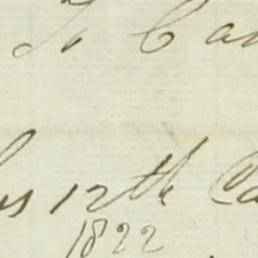 To Ca
us 12th Ca
1822